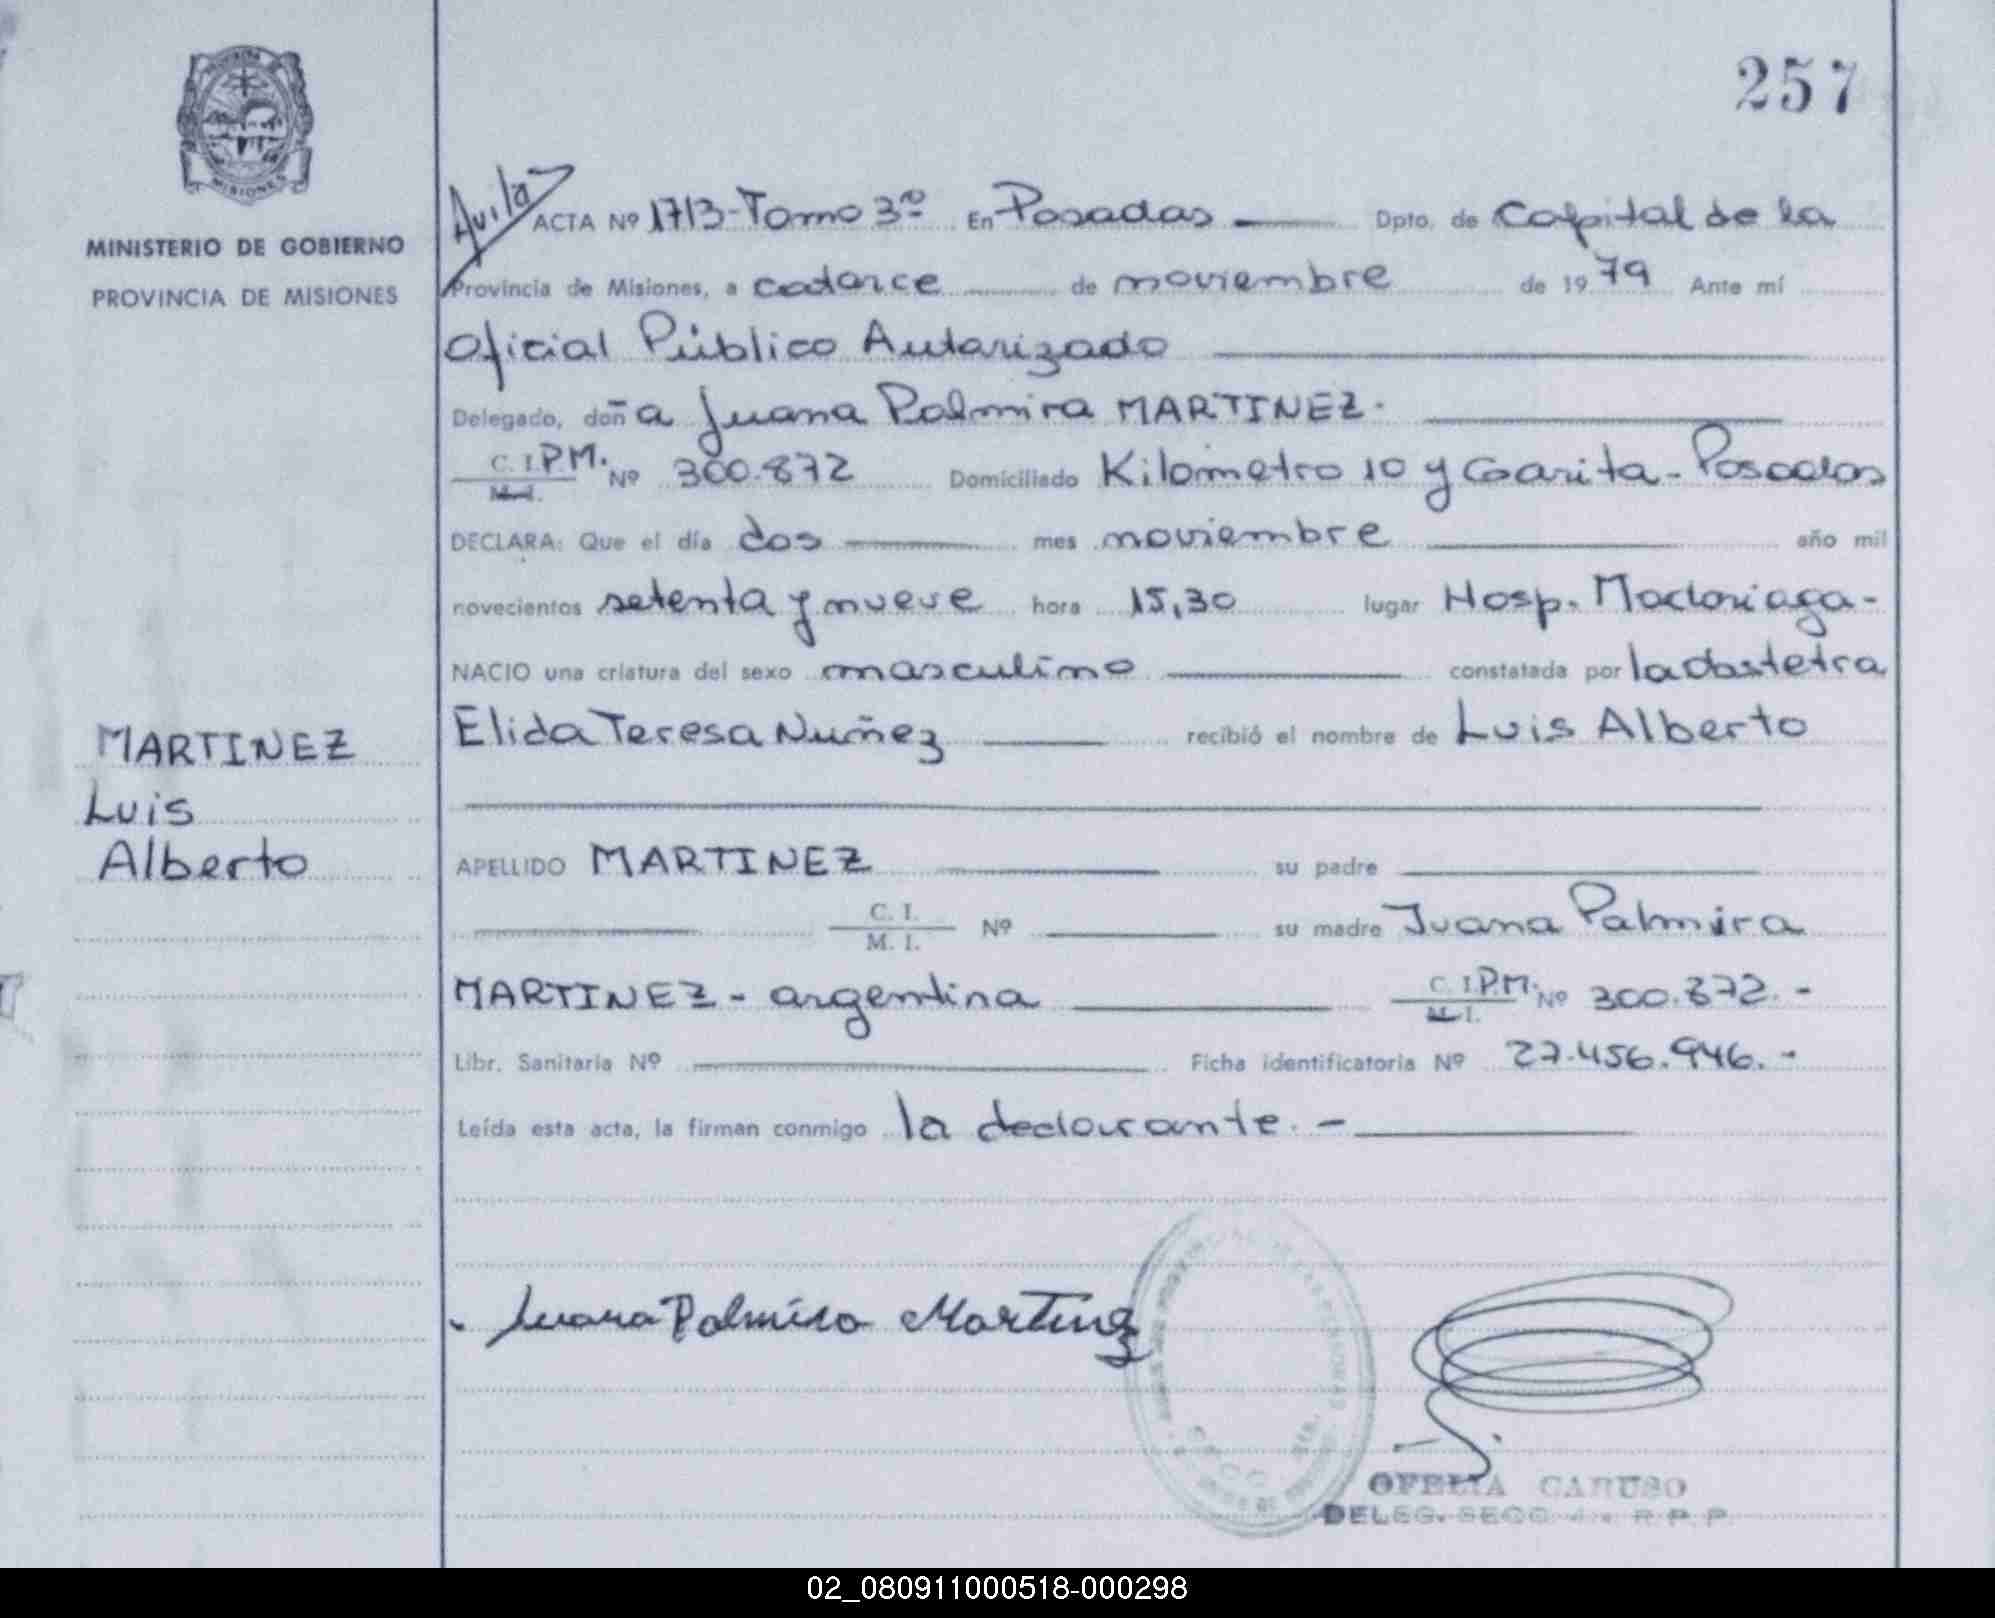 257
MINISTERIO DE GOBIERNO
PROVINCIA DE MISIONES
Avila
ACTA Nº 1713-Tomo 3º En Posadas Dpto. de Capital de la
Provincia de Misiones, a catorce de noviembre de 1979 Ante mí
Oficial Público Autorizado
Delegado, doña Juana Palmira MARTINEZ.
C. I. P.M. Nº 300.872 Domiciliado Kilometro 10 y Garita - Posadas
M. I.
DECLARA: Que el día dos mes noviembre año mil
novecientos setenta y nueve hora 15,30 lugar Hosp. Madariaga-
NACIO una criatura del sexo masculino constatada por la obstetra
Elida Teresa Nuñez recibió el nombre de Luis Alberto
MARTINEZ
Luis
Alberto
APELLIDO MARTINEZ su padre
C. I.
M. I. Nº su madre Juana Palmira
MARTINEZ - argentina C. I. P.M. Nº 300.872.-
M. I.
Libr. Sanitaria Nº Ficha identificatoria Nº 27.456.946.-
Leída esta acta, la firman conmigo la declarante.-
Juana Palmira Martinez
OFELIA CARUSO
DELEG. SECC R. P. P.
02_080911000518-000298